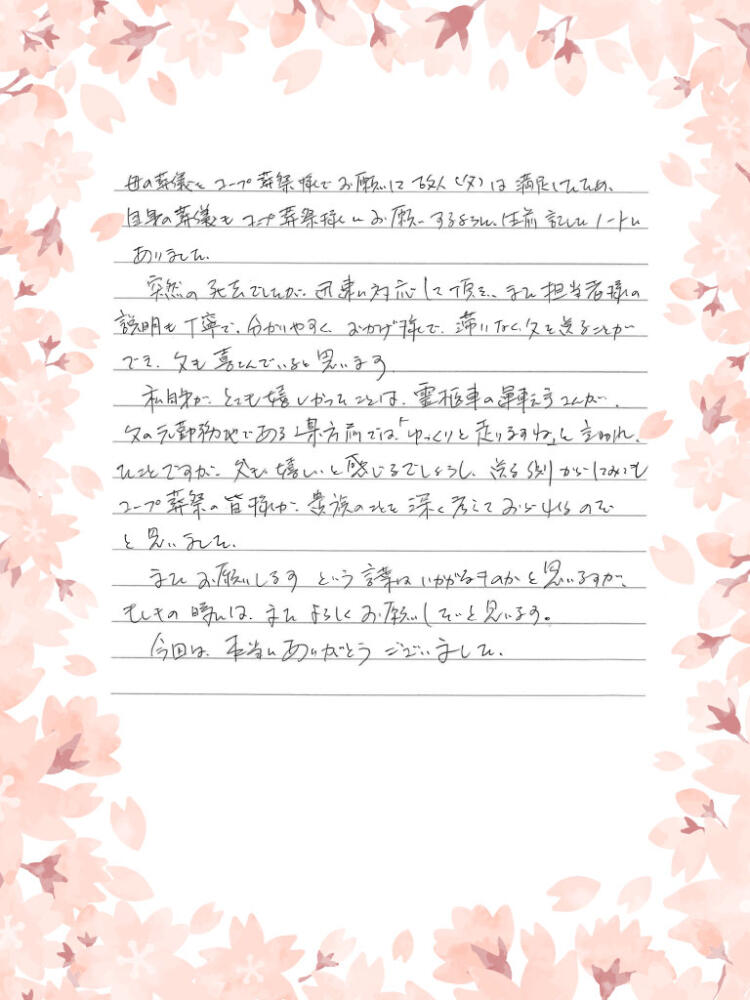 母の葬儀をコープ葬祭様でお願いして故人(父)は満足していたため、
自身の葬儀もコープ葬祭様にお願いするように、生前記したノートに
ありました。
突然の死去でしたが、迅速に対応して頂き、また担当者様の
説明も丁寧で、分かりやすく、おかげ様で、滞りなく父を送ることが
でき、父も喜んでいると思います。
私自身が、とても嬉しかったことは、霊柩車の運転手さんが、
父の元勤務地である 前では「ゆっくりと走りますね」と言われ、
ひことですが、父も嬉しいと感じるでしょうし、送る側からしてみても
コープ葬祭の皆様が、貴族のことを深く考えておられるのだ
と思いました。
またお願いしますという言葉はいかがなものかと思いますが、
もしその時には、またよろしくお願いしたいと思います。
今回は、本当にありがとうございました。